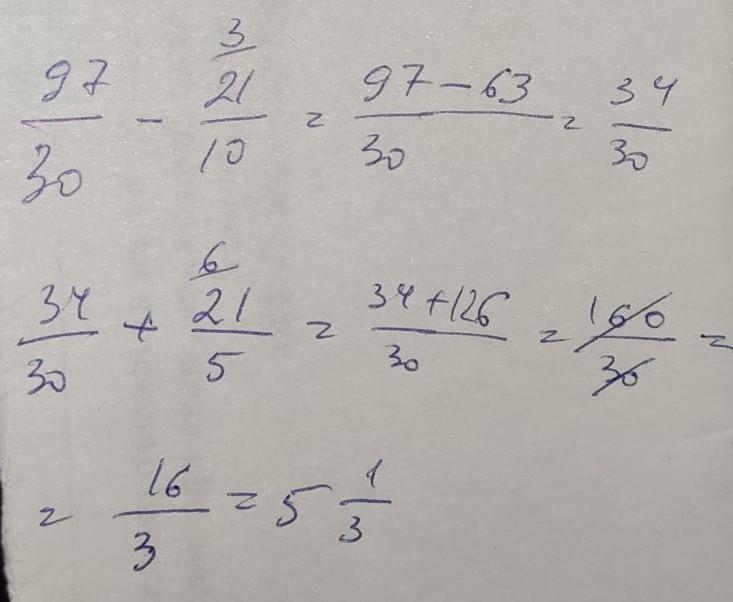 97/30 - 3/21/10 = 97-63/30 = 34/30
34/30 + 6/21/5 = 34+126/30 = 160/30 =
= 16/3 = 5 1/3